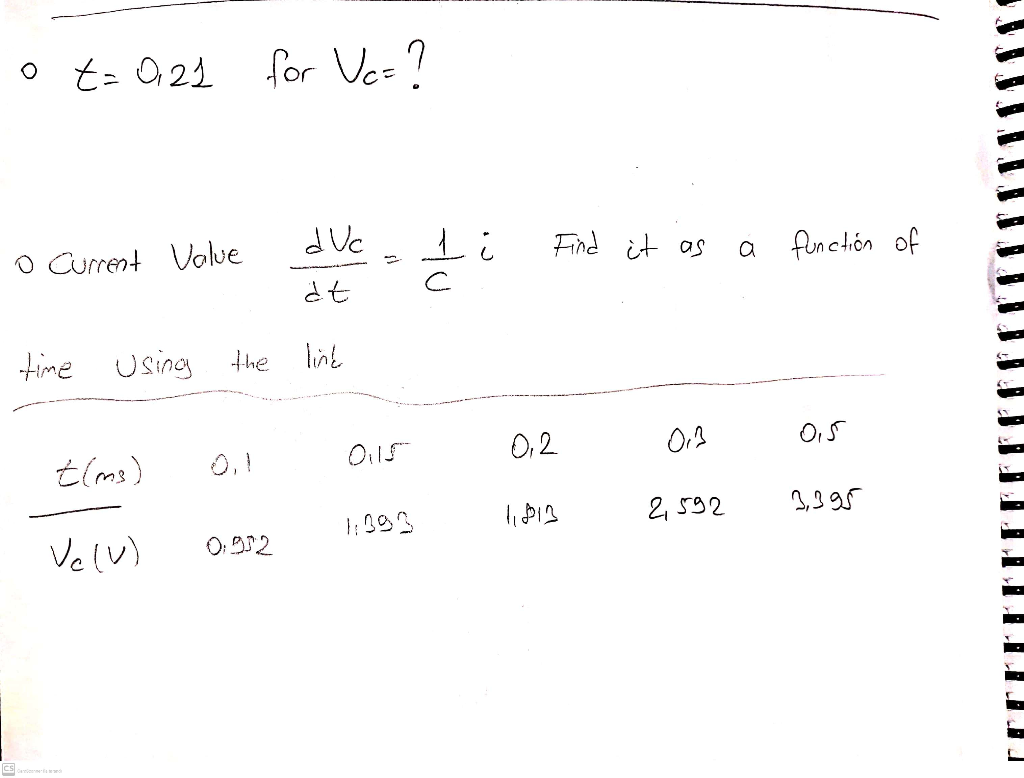 o t= 0,21 for Vc=?
o Current Value dVc/dt = 1/C i Find it as a function of
time using the link
t(ms) 0,1 0,15 0,2 0,3 0,5
Vc(V) 0,952 1,393 1,813 2,592 3,395
CS